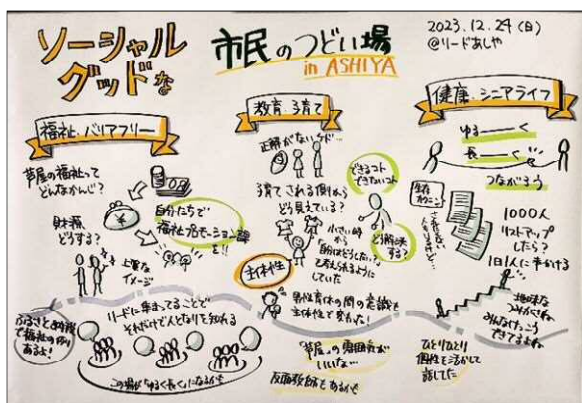 ソーシャル
グッドな
市民のつどい場
in ASHIYA
2023.12.24(日)
@リードあしや
福祉・バリアフリー
芦屋の福祉って
どんなかんじ?
財源
どうする?
自分たちで
福祉プロモーション
を!!
上質な
イメージ
ふるさと納税
で福祉の例
あるよ!
リードに集まってることで
それだけで人となりて知れる
この場が「ゆるく長く」になるかも
教育・子育て
正解がないケド…
子育てされる側から
どう見えている?
できるコト
できないコト
どう解決
する?
小さい時
から
「自分はどうしたい?」
を考えられるように
していた
主体性
男性育休の間の意識も
主体性で変わった!
「芦屋」の雰囲気が
いいな…
反面教師もあるかも
健康・シニアライフ
ゆる――く
長――く
つながろう
1000人
リストアップ
したら?
1日1人に声かける
地味な
つみかさね
みんなけっこう
できてるよね
ひとりひとり
個性を活かして
話してた